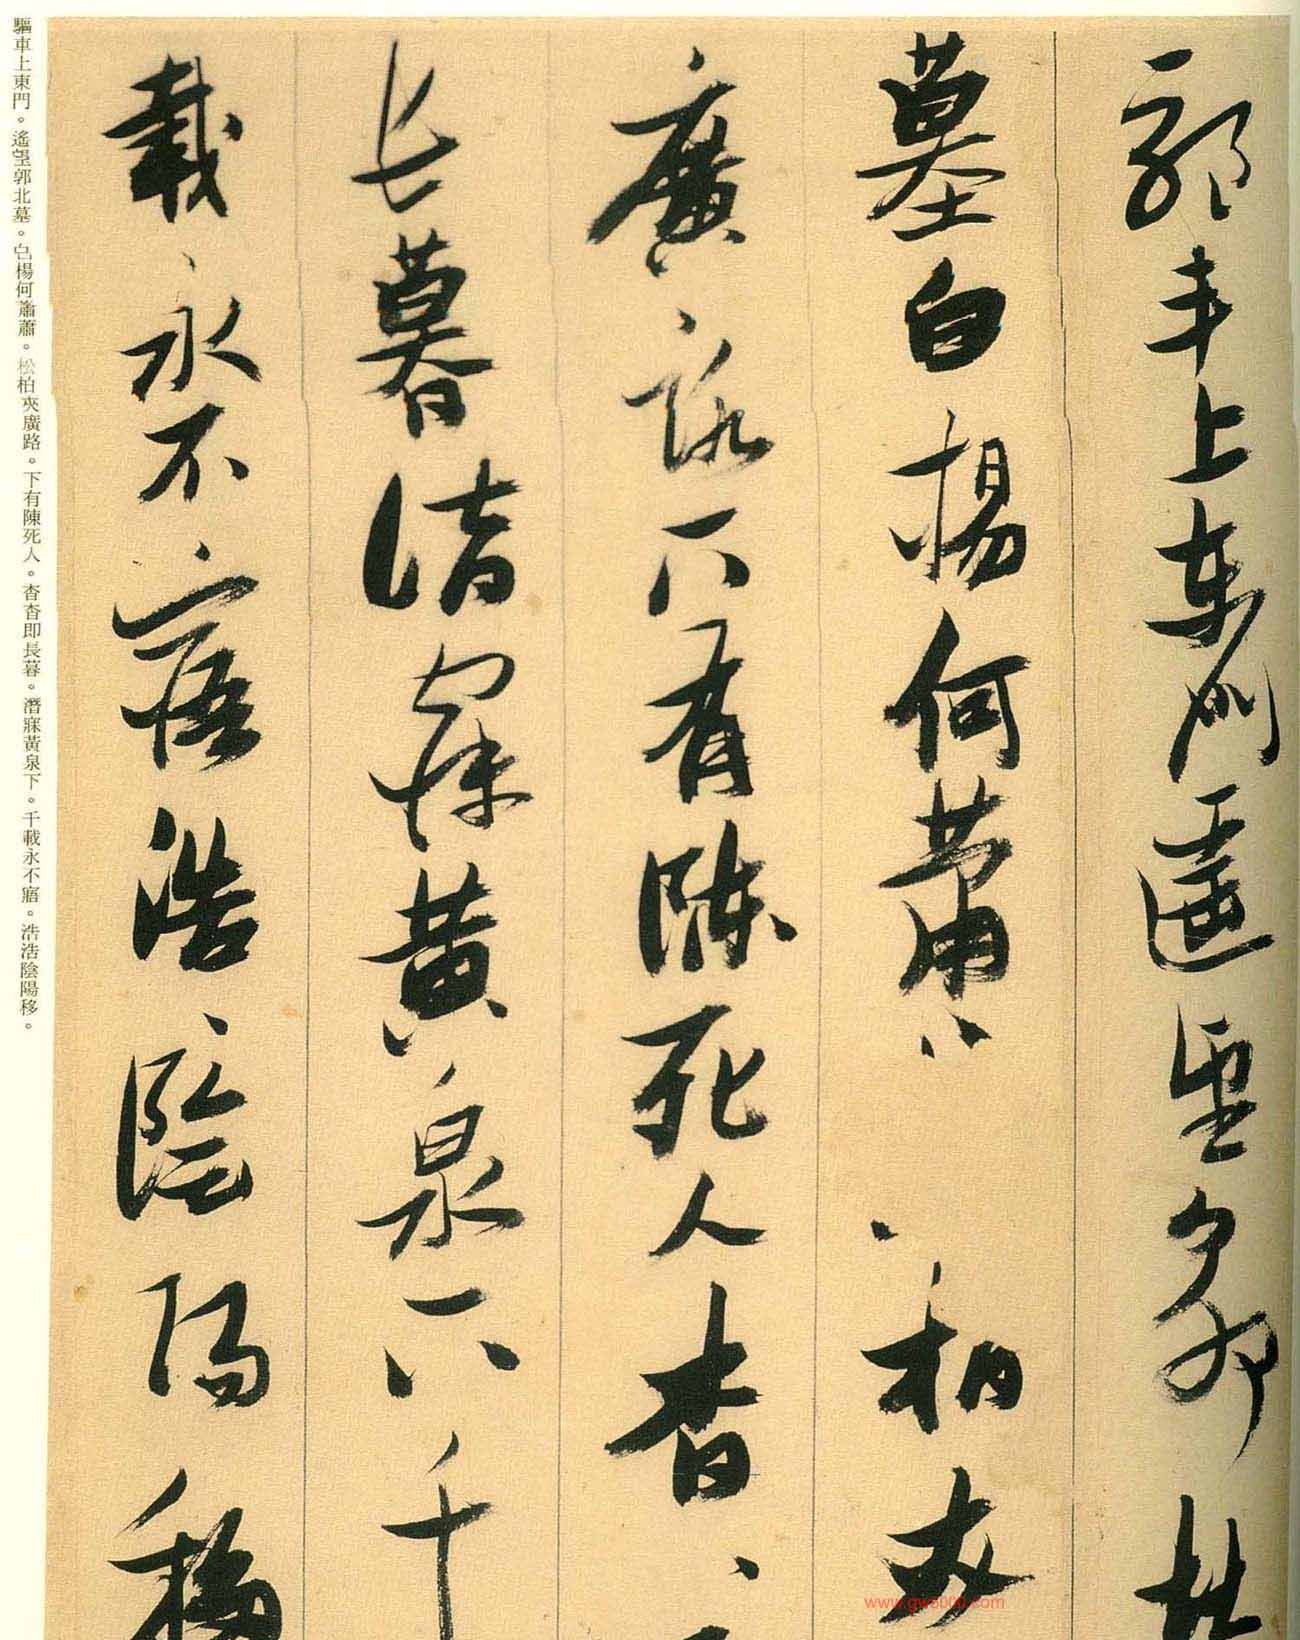 驅车上东门遥望郭北
墓白楊何萧〻松柏夾
廣路下有陳死人杳〻即
长暮潛寐黄泉下千
載永不寤浩〻陰陽移
驅車上東門。遙望郭北墓。白楊何蕭蕭。松柏夾廣路。下有陳死人。杳杳即長暮。潛寐黃泉下。千載永不寤。浩浩陰陽移。
www.gw5000.com